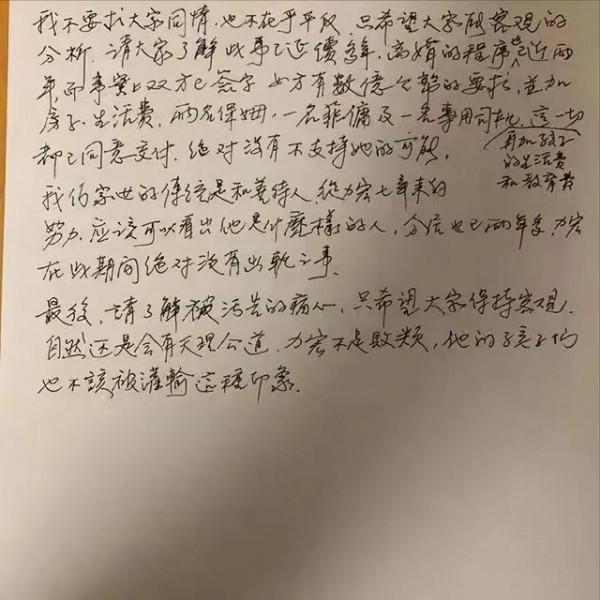 我不要求大家同情,也不在乎平反,只希望大家 客观的
分析.请大家了解此事已延續多年.离婚的程序也已近两
年,而事实上双方已簽字 女方有数億金額的要求,並加
房子.生活费.两名保姆.一名菲傭及一名專用司机,這一切
都已同意支付.绝对没有不支持她的可能.
再加孩子
的生活费
和教育费
我们家世的傳統是和善待人.從力宏七年来的
努力.应该可以看出他是什麼樣的人,分居也已两年多,力宏
在此期间绝对没有出軌之事.
最後,請了解被污告的痛心,只希望大家保持客观.
自然还是会有天理公道.力宏不是敗類,他的孩子们
也不該被灌輸這種印象.